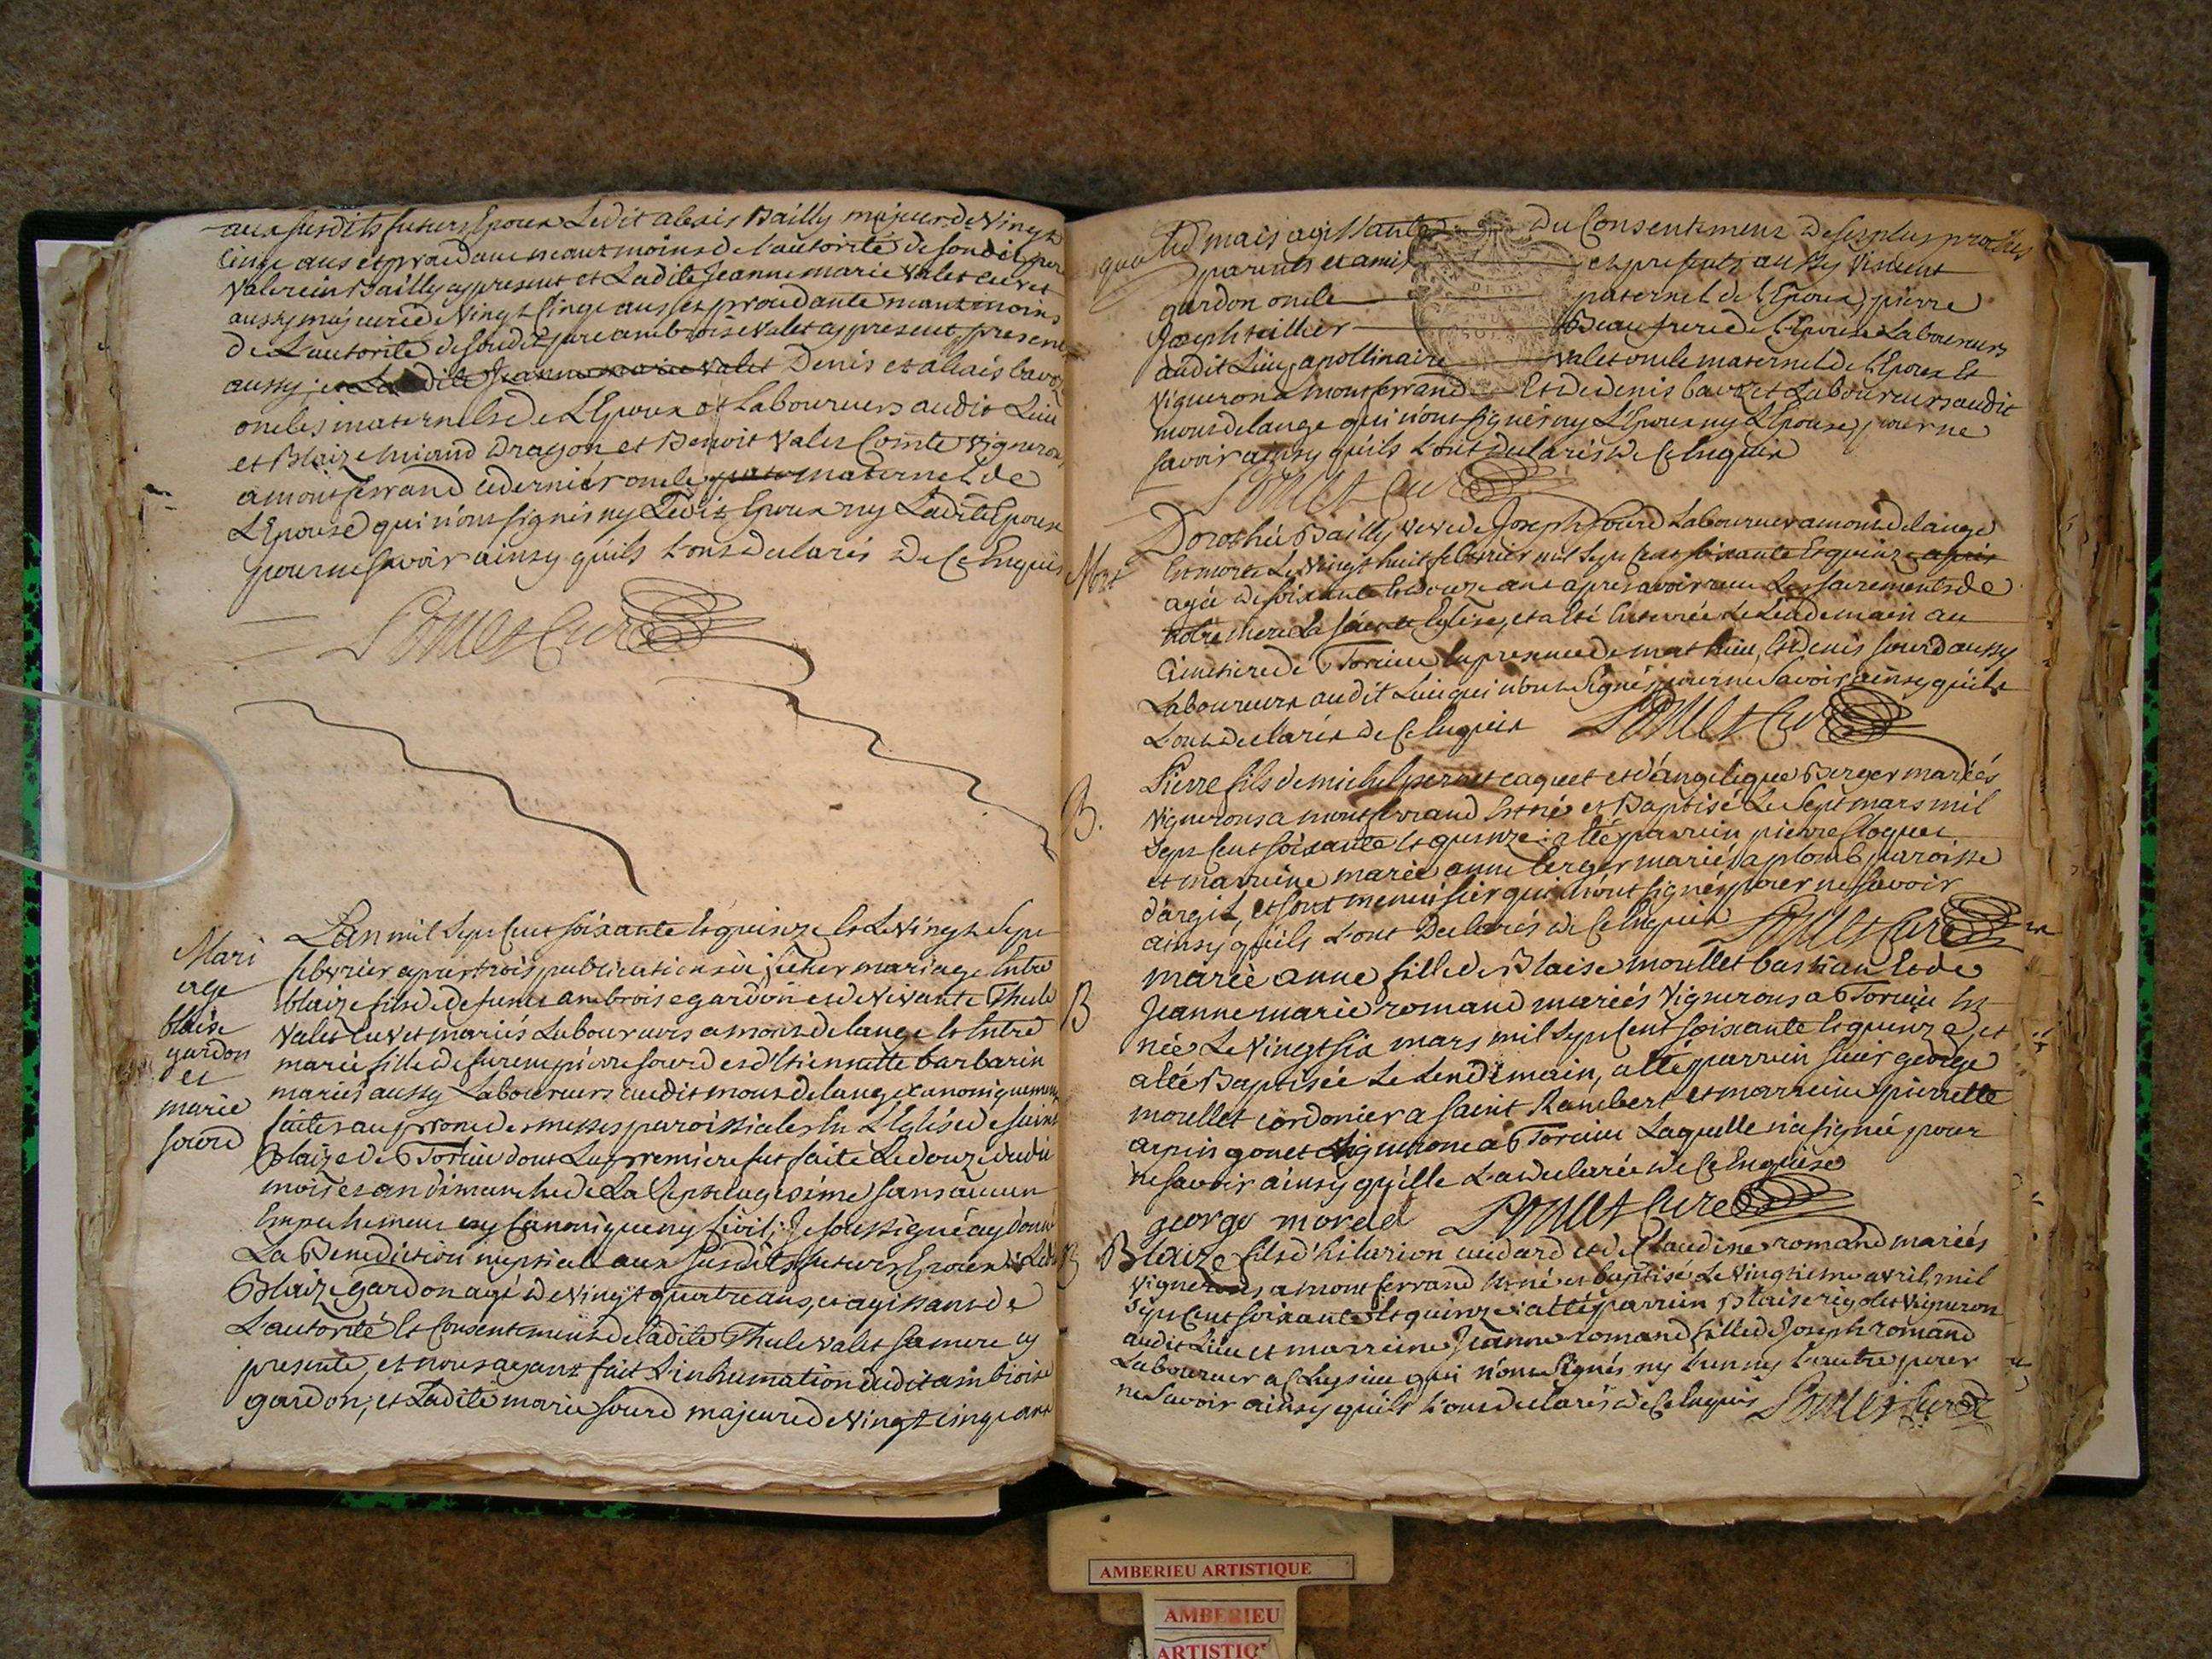 aux susdits futurs Epoux Ledit alexis Bailly majeur de Vingt
Cinq ans et procedant neantmoins de l'autorité de sondit pere
Valerein Bailly a present et Ladite Jeanne marie Valet
aussy majeure de Vingt Cinq ans et procedante neantmoins
de L'autorité de sondit pere ambroise Valet a present present
aussy; et Ladite Jeanne marie Valet Denis et alexis
oncles maternels de L'Epoux et Laboureurs audit Lieu
et Blaize miand Dragon et Benoit Valet Comte Vigneron
a montferrand ce dernier oncle pate maternel de
L'Epouse qui n'ont signés ny Ledit Epoux ny Ladite Epouse
pour ne savoir ainsy qu'ils L'ont declarés de Ce Enquis
Pomet Curé
Mari
age
blaise
gardon
et
marie
sourd
L'an mil Sept Cent soixante et quinze et Le Vingt Sept
febvrier apres trois publications du futur mariage Entre
blaize fils de defunt ambroise gardon et de Vivante Thule
Valet mariés Laboureurs a mont de lange et Entre
marie fille de furent pierre sourd et d'Etiennette barbarin
mariés aussy Laboureurs audit mont de lange canoniquement
faites au prone des messes paroissiales En L'Eglise de saint
Blaize de Torcieu dont La premiere fut faite Le douze dudit
mois et an dimanche de La Septuagesime sans aucun
Empechement ny Canonique ny Civil; Je soussigné ay donné
La Benediction nuptiale aux susdits futurs Epoux Ledit
Blaize gardon agé de Vingt quatre ans, et agissant de
L'autorité Et Consentement de ladite Thule Valet sa mere cy
presente, et nous ayant fait L'inhumation dudit ambroise
gardon; et Ladite marie sourd majeure de Vingt cinq ans
mais agissante du Consentement de ses plus proches
parents et amis cy presents aussy Vincent
gardon oncle paternel de L'Epoux, pierre
Joseph tillier Beau frere de L'Epouse Laboureurs
audit Lieu, apollinaire Valet oncle maternel de L'Epoux Et
Vigneron a montferrand Et de denis Laboureurs audit
mont de lange qui n'ont signés ny L'Epoux ny L'Epouse, pour ne
savoir ainsy qu'ils L'ont declarés de Ce Enquis
Pomet Curé
Mort
Dorothée Bailly veve de Joseph Sourd Laboureur a mont de lange
Est morte Le Vingt huit febvrier mil Sept Cent soixante Et quinze apres
agée de soixante Et douze ans apres avoir reçu Les sacrements de
notre mere La sainte Eglise, et a Eté Enterrée Le Lendemain au
Cimetiere de Torcieu En presence de mathieu, Et denis sourd aussy
Laboureurs audit Lieu qui n'ont Signés pour ne Savoir ainsy qu'ils
L'ont declarés de Ce Enquis Pomet Curé
B.
Pierre fils de michel pernet caquet et d'angelique Berger mariés
Vignerons a montferrand Est né et Baptisé Le Sept mars mil
Sept Cent soixante Et quinze: a Eté parrein pierre
et marreine marie anne berger mariés a plomb, paroisse
d'argit, et sont qui n'ont signés pour ne savoir
ainsy qu'ils L'ont Declarés de Ce Enquis Pomet Curé
B
marie anne fille de Blaise moullet bastian Et de
Jeanne marie romand mariés Vignerons a Torcieu Est
née Le Vingt six mars mil Sept Cent soixante Et quinze, et
a Eté Baptisée Le Lendemain, a Eté parrein sieur george
moullet cordonier a saint Rambert et marreine pierrette
arpin gonet Vigneronne a Torcieu Laquelle n'a signée pour
ne savoir ainsy qu'elle L'a declarée de Ce Enquise
george morlel Pomet Curé
B
Blaize fils d'hilarion cudard et de Claudine romand mariés
Vignerons a montferrand Est né et baptisé Le Vingtieme avril mil
Sept Cent soixante Et quinze: a Eté parrein Blaise rigolet Vigneron
audit Lieu et marreine Jeanne romand fille de Joseph romand
Laboureur a Cleyzieu qui n'ont Signés ny L'un ny L'autre pour
ne Savoir ainsy qu'ils L'ont declarés de Ce Enquis Pomet Curé
AMBERIEU ARTISTIQUE
AMBERIEU